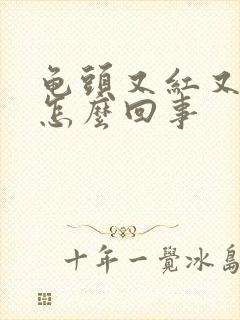 龟頭又紅又
怎麼回事
十年一覺冰島